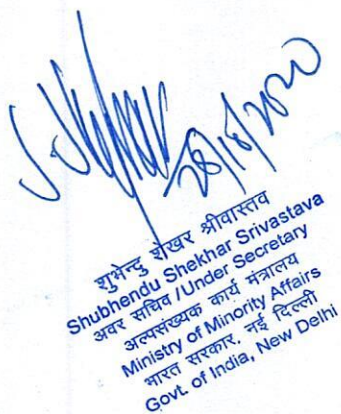 28/10/2020
शुभेन्दु शेखर श्रीवास्तव
Shubhendu Shekhar Srivastava
अवर सचिव / Under Secretary
अल्पसंख्यक कार्य मंत्रालय
Ministry of Minority Affairs
भारत सरकार, नई दिल्ली
Govt. of India, New Delhi